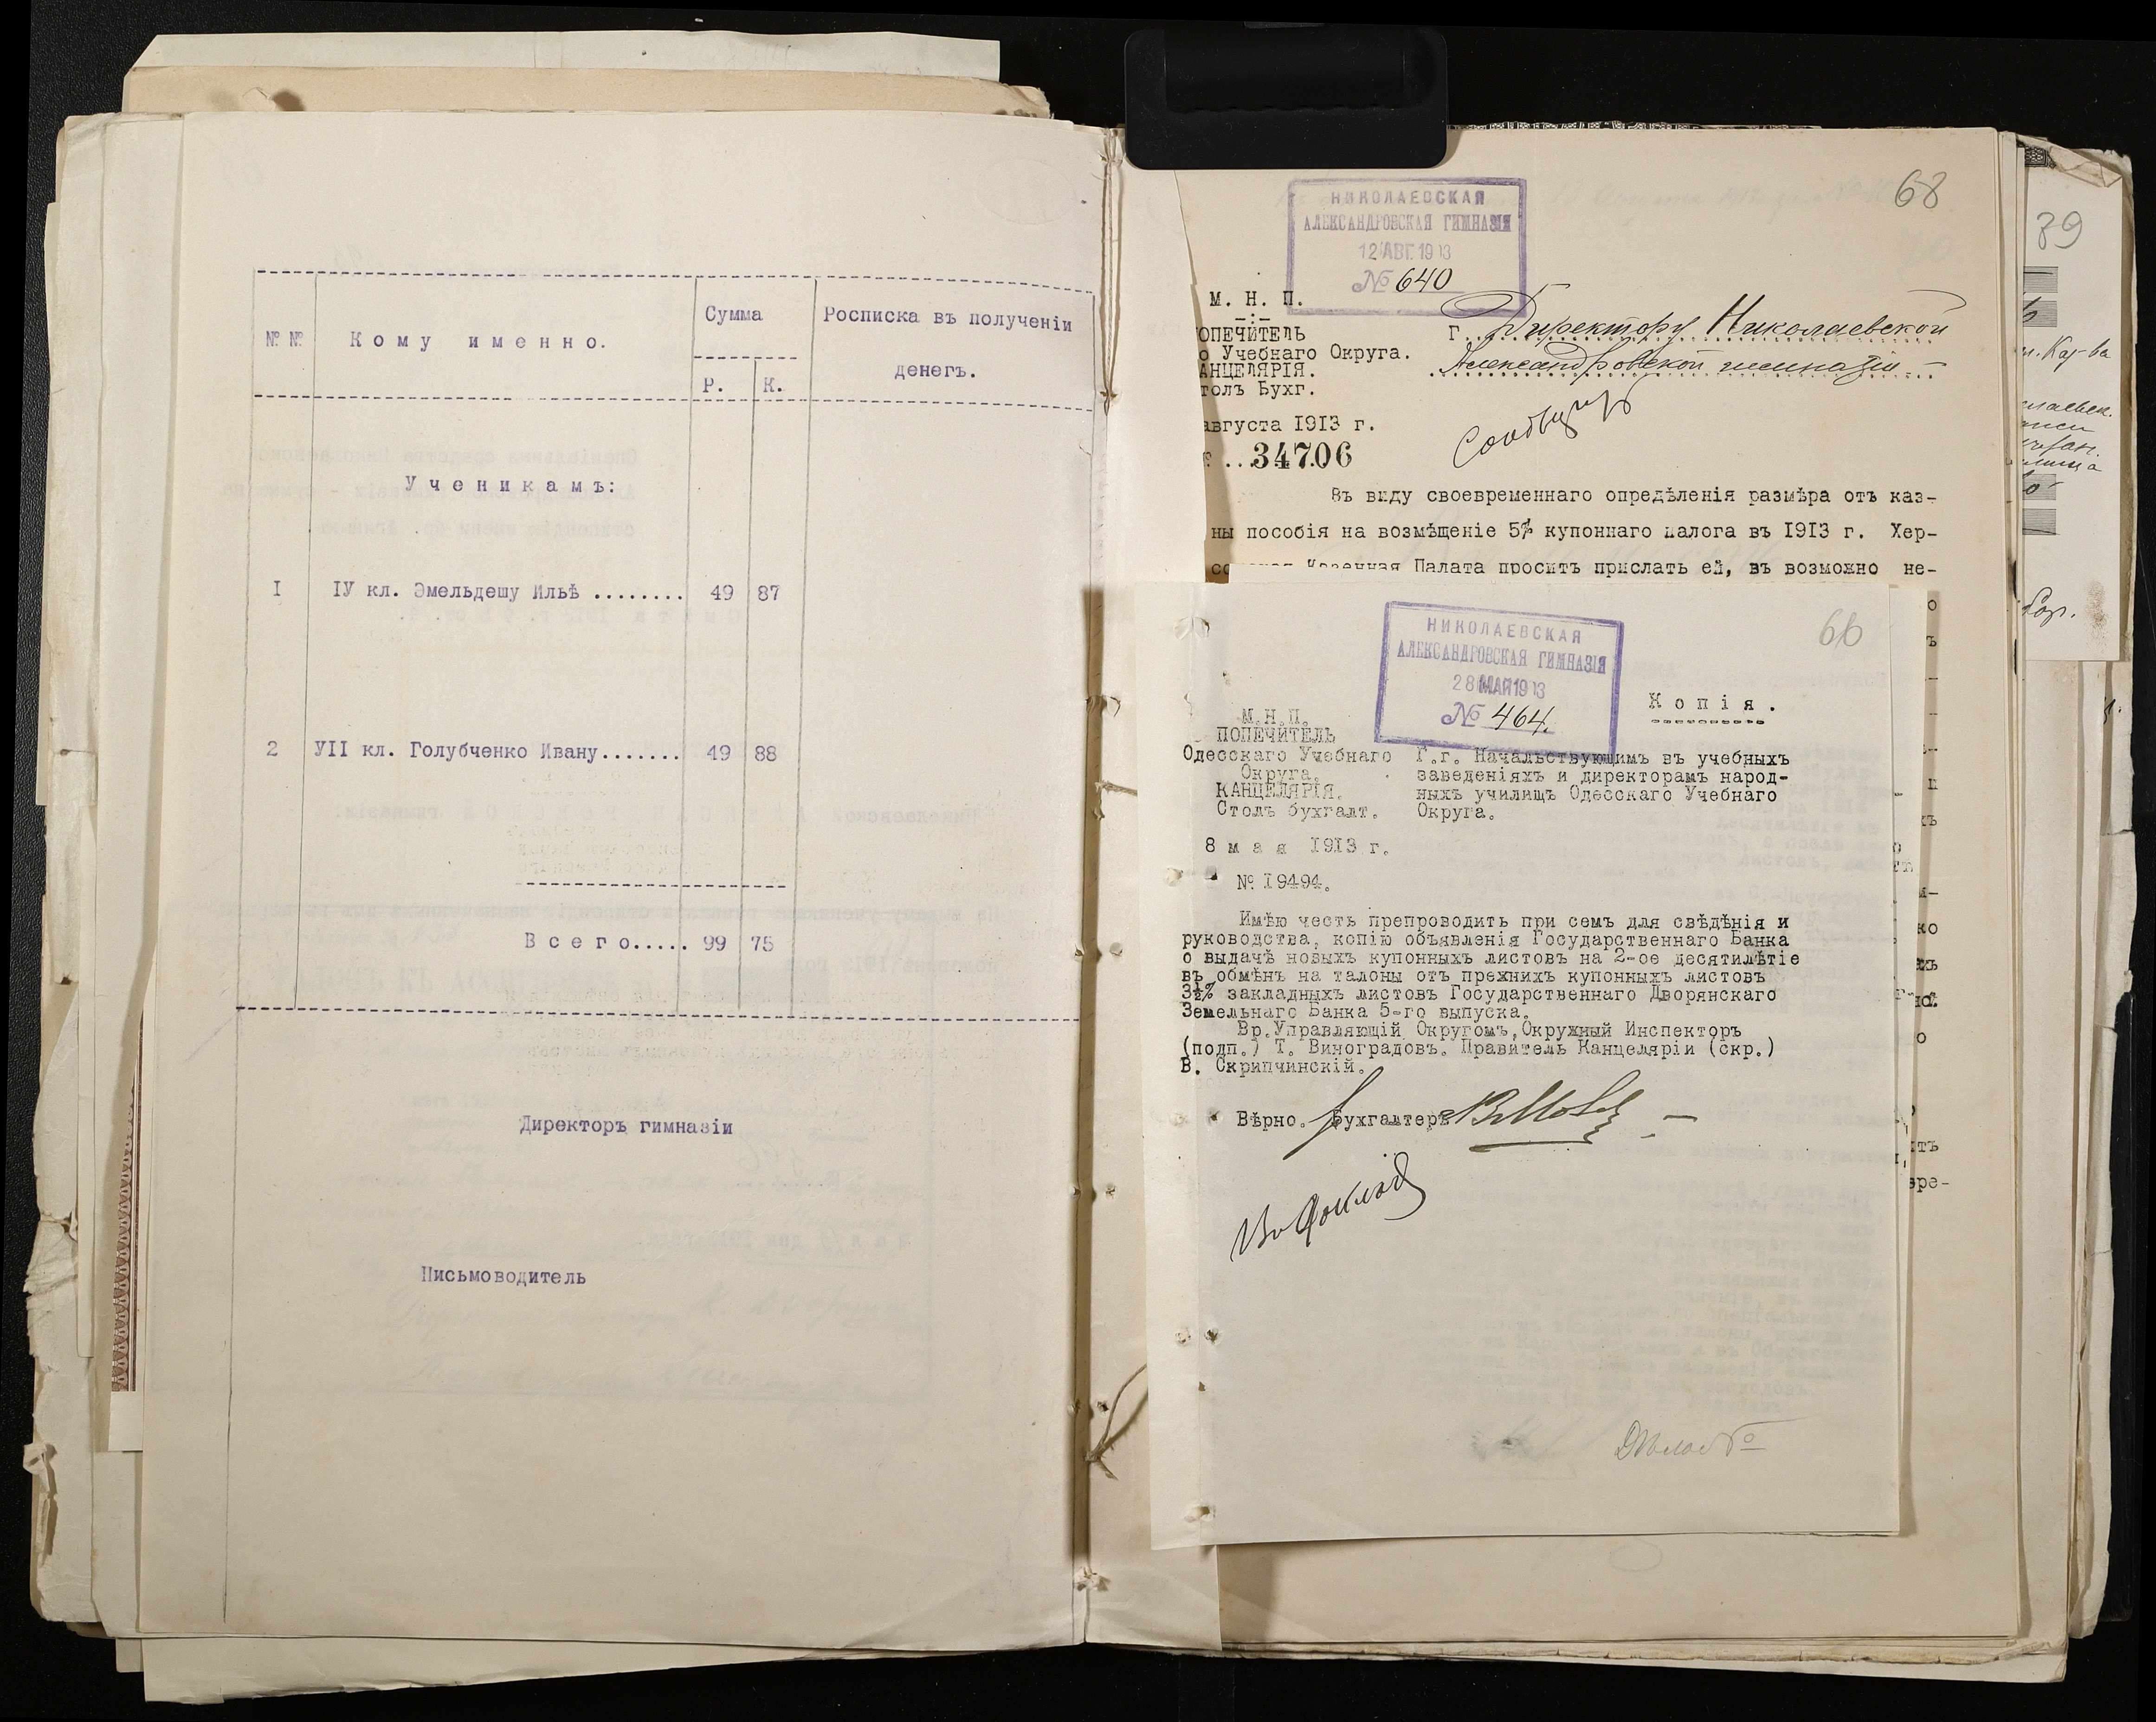 № №
Кому именно.
Сумма
Р. К.
Росписка въ полученіи
денегъ.
Ученикамъ:
I IУ кл. Эмельдешу Ильѣ ........ 49 87
2 УII кл. Голубченко Ивану....... 49 88
Всего..... 99 75
Директоръ гимназіи
Письмоводитель
68
НИКОЛАЕВСКАЯ
АЛЕКСАНДРОВСКАЯ ГИМНАЗІЯ
12 АВГ. 1913
№ 640
М. Н. П.
ОПЕЧИТЕЛЬ
о Учебнаго Округа.
АНЦЕЛЯРІЯ.
толъ Бухг.
августа 1913 г.
34706
Г. Директору Николаевской
Александровской гимназіи
Въ виду своевременнаго опредѣленія размѣра отъ каз-
ны пособія на возмѣщеніе 5% купоннаго налога въ 1913 г. Хер-
Казенная Палата проситъ прислать ей, въ возможно не-
66
НИКОЛАЕВСКАЯ
АЛЕКСАНДРОВСКАЯ ГИМНАЗІЯ
28 МАЯ 1913
№ 464.
Копія.
М.Н.П.
ПОПЕЧИТЕЛЬ
Одесскаго Учебнаго
Округа.
КАНЦЕЛЯРІЯ.
Столъ бухгалт.
8 мая 1913 г.
№ 19494.
Г.г. Начальствующимъ въ учебныхъ
заведеніяхъ и директорамъ народ-
ныхъ училищъ Одесскаго Учебнаго
Округа.
Имѣю честь препроводить при семъ для свѣдѣнія и
руководства, копію объявленія Государственнаго Банка
о выдачѣ новыхъ купонныхъ листовъ на 2-ое десятилѣтіе
въ обмѣнъ на талоны отъ прежнихъ купонныхъ листовъ
3½% закладныхъ листовъ Государственнаго Дворянскаго
Земельнаго Банка 5-го выпуска.
Вр.Управляющій Округомъ,Окружный Инспекторъ
(подп.) Т. Виноградовъ. Правитель Канцеляріи (скр.)
В. Скрипчинскій.
Вѣрно. Бухгалтеръ
39